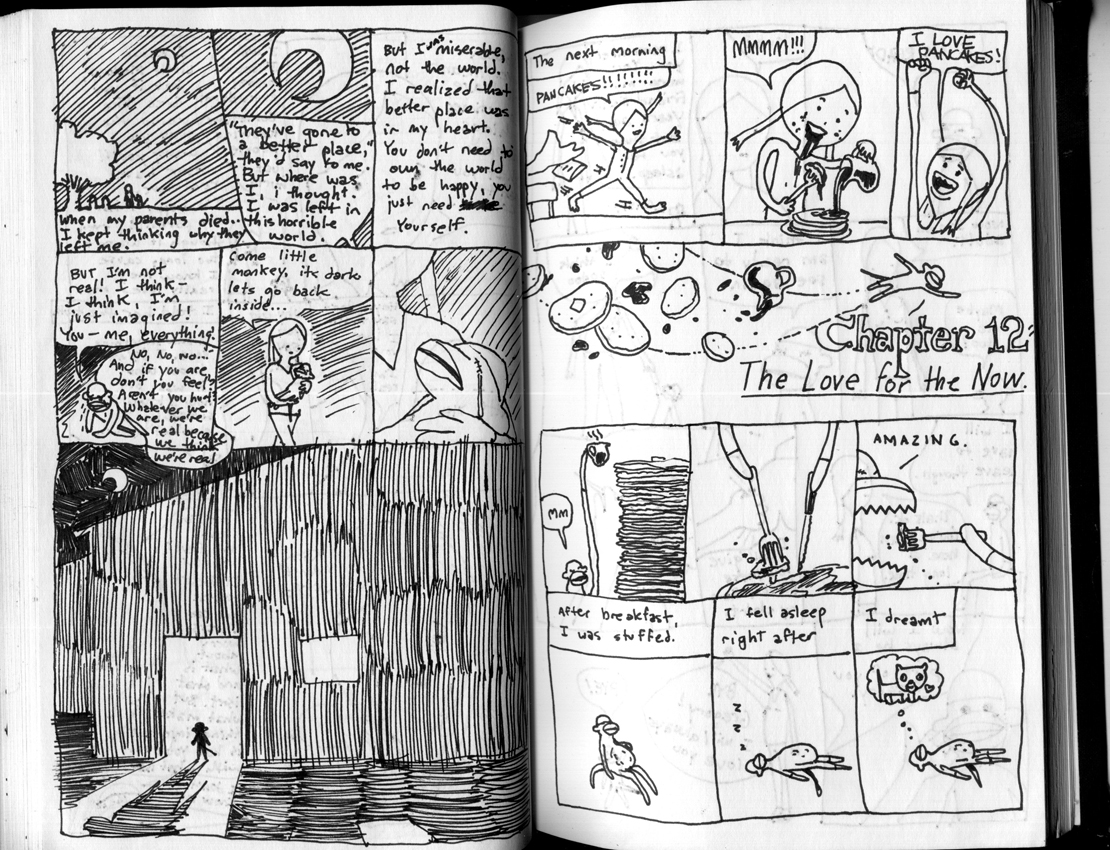 when my parents died..
I kept thinking why they
left me.
"They've gone to
a better place,"
they'd say to me.
But where was
I, i thought.
I was left in
this horrible
world.
But I was miserable,
not the world.
I realized that
better place was
in my heart.
You don't need to
own the world
to be happy, you
just need
Yourself.
BUT I'm not
real! I think-
I think, I'm
just imagined!
You - me, everything!
No, No, No...
And if you are,
don't you feel?
Aren't you hurt?
Whatever we
are, we're
real because
we think
we're real
Come little
monkey, its dark
lets go back
inside...
The next morning
PANCAKES!!!!!!!!
MMMM!!!
I LOVE
PANCAKES!
Chapter 12:
The Love for the Now.
MM
AMAZING.
After breakfast,
I was stuffed.
I fell asleep
right after
I dreamt
z
z
z